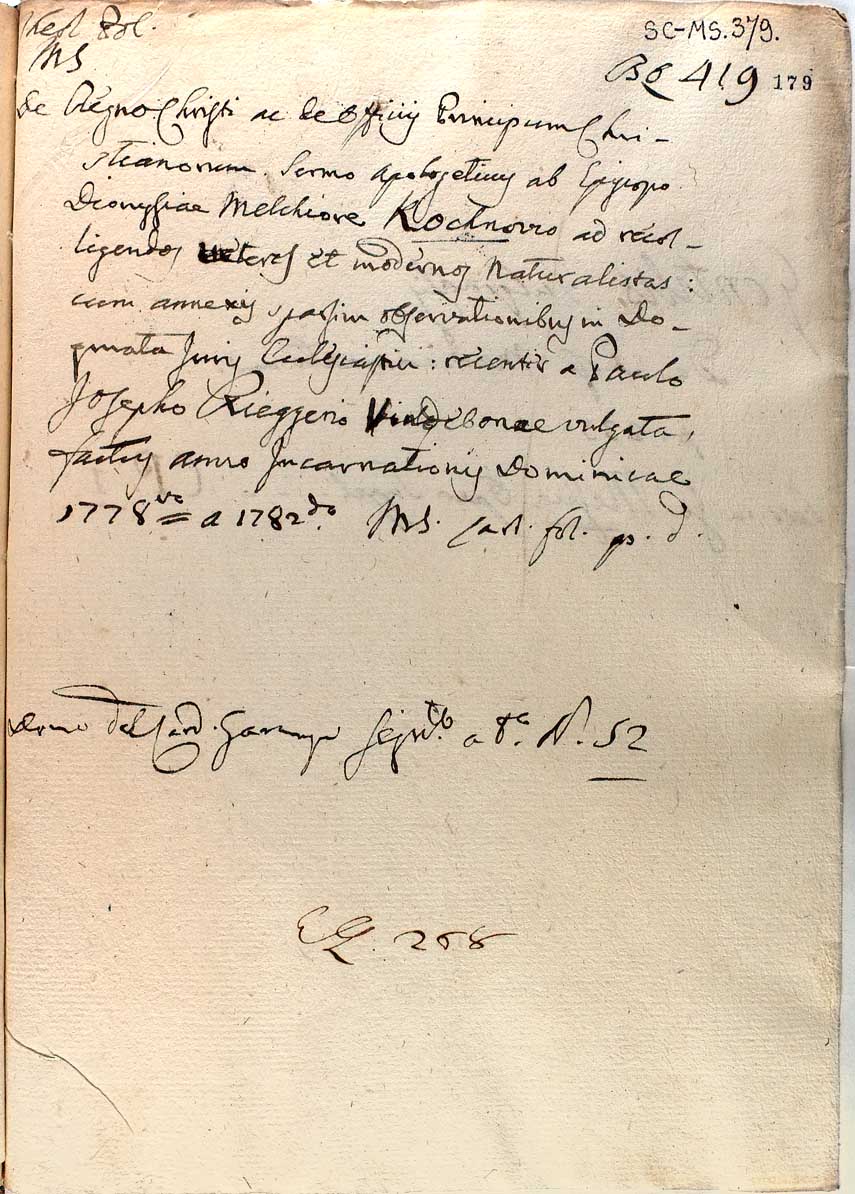 Theol Pol.
SC-MS.379.
MS
BQ 419 179
De Regno Christi ac de Officiis Principum Chri-
stianorum. Sermo Apologeticus ab Episcopo
Dionysiae Melchiore Kochnovio ad recol-
ligendos veteres et modernos Naturalistas:
cum annexis sparsim observationibus in Do-
gmata Juris Ecclesiastici: recenter a Paulo
Josepho Rieggerio Vindebonae vulgata,
factus anno Incarnationis Dominicae
1778vo = a 1782do. MS. cart. fol. p. d.
del Card. Garampi a N. 52
268